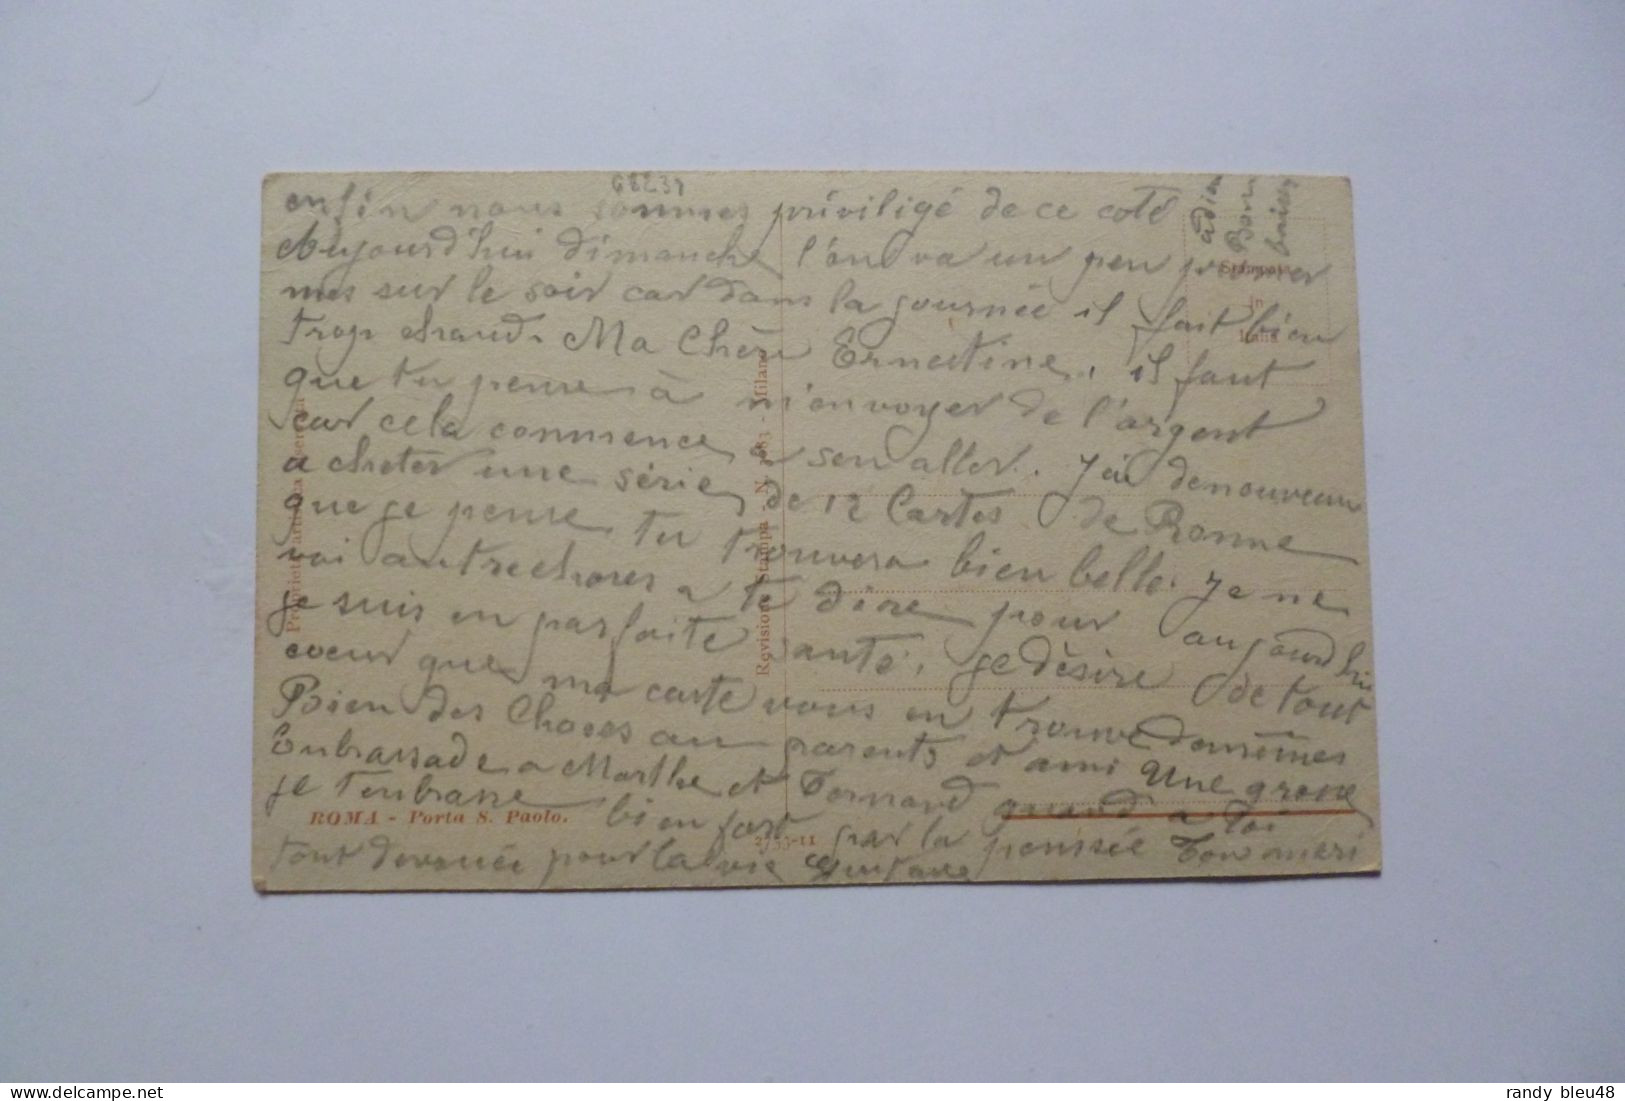 68239
enfin nous sommes priviligé de ce coté
Aujourd'hui dimanche l'on va un peu promener
mes sur le soir car dans la journée il fait bien
trop chaud. Ma Chère Ernestine, il faut
que tu pense à m'envoyer de l'argent
car cela commence a sen aller. J'ai denouveau
acheter une série de 12 Cartes de Romme
que je pense tu trouvera bien belle. Je ne
voi autrechoses a te dire pour aujourdhui
je suis en parfaite santé. je dèsire de tout
coeur que ma carte vous en trouve demêmes
Bien des Choses au parents et ami Une grosse
Enbrassade a Marthe et Fernand quand a toi
je tenbrasse bien fort par la pensée Ton mari
tout devouée pour la vie Gustave
adieu
Bons
baisers
Stampata
in
Italia
Proprietà artistica riservata
Revisione Stampa - N. 3683 - Milano
ROMA - Porta S. Paolo.
2753-11
randy bleu48